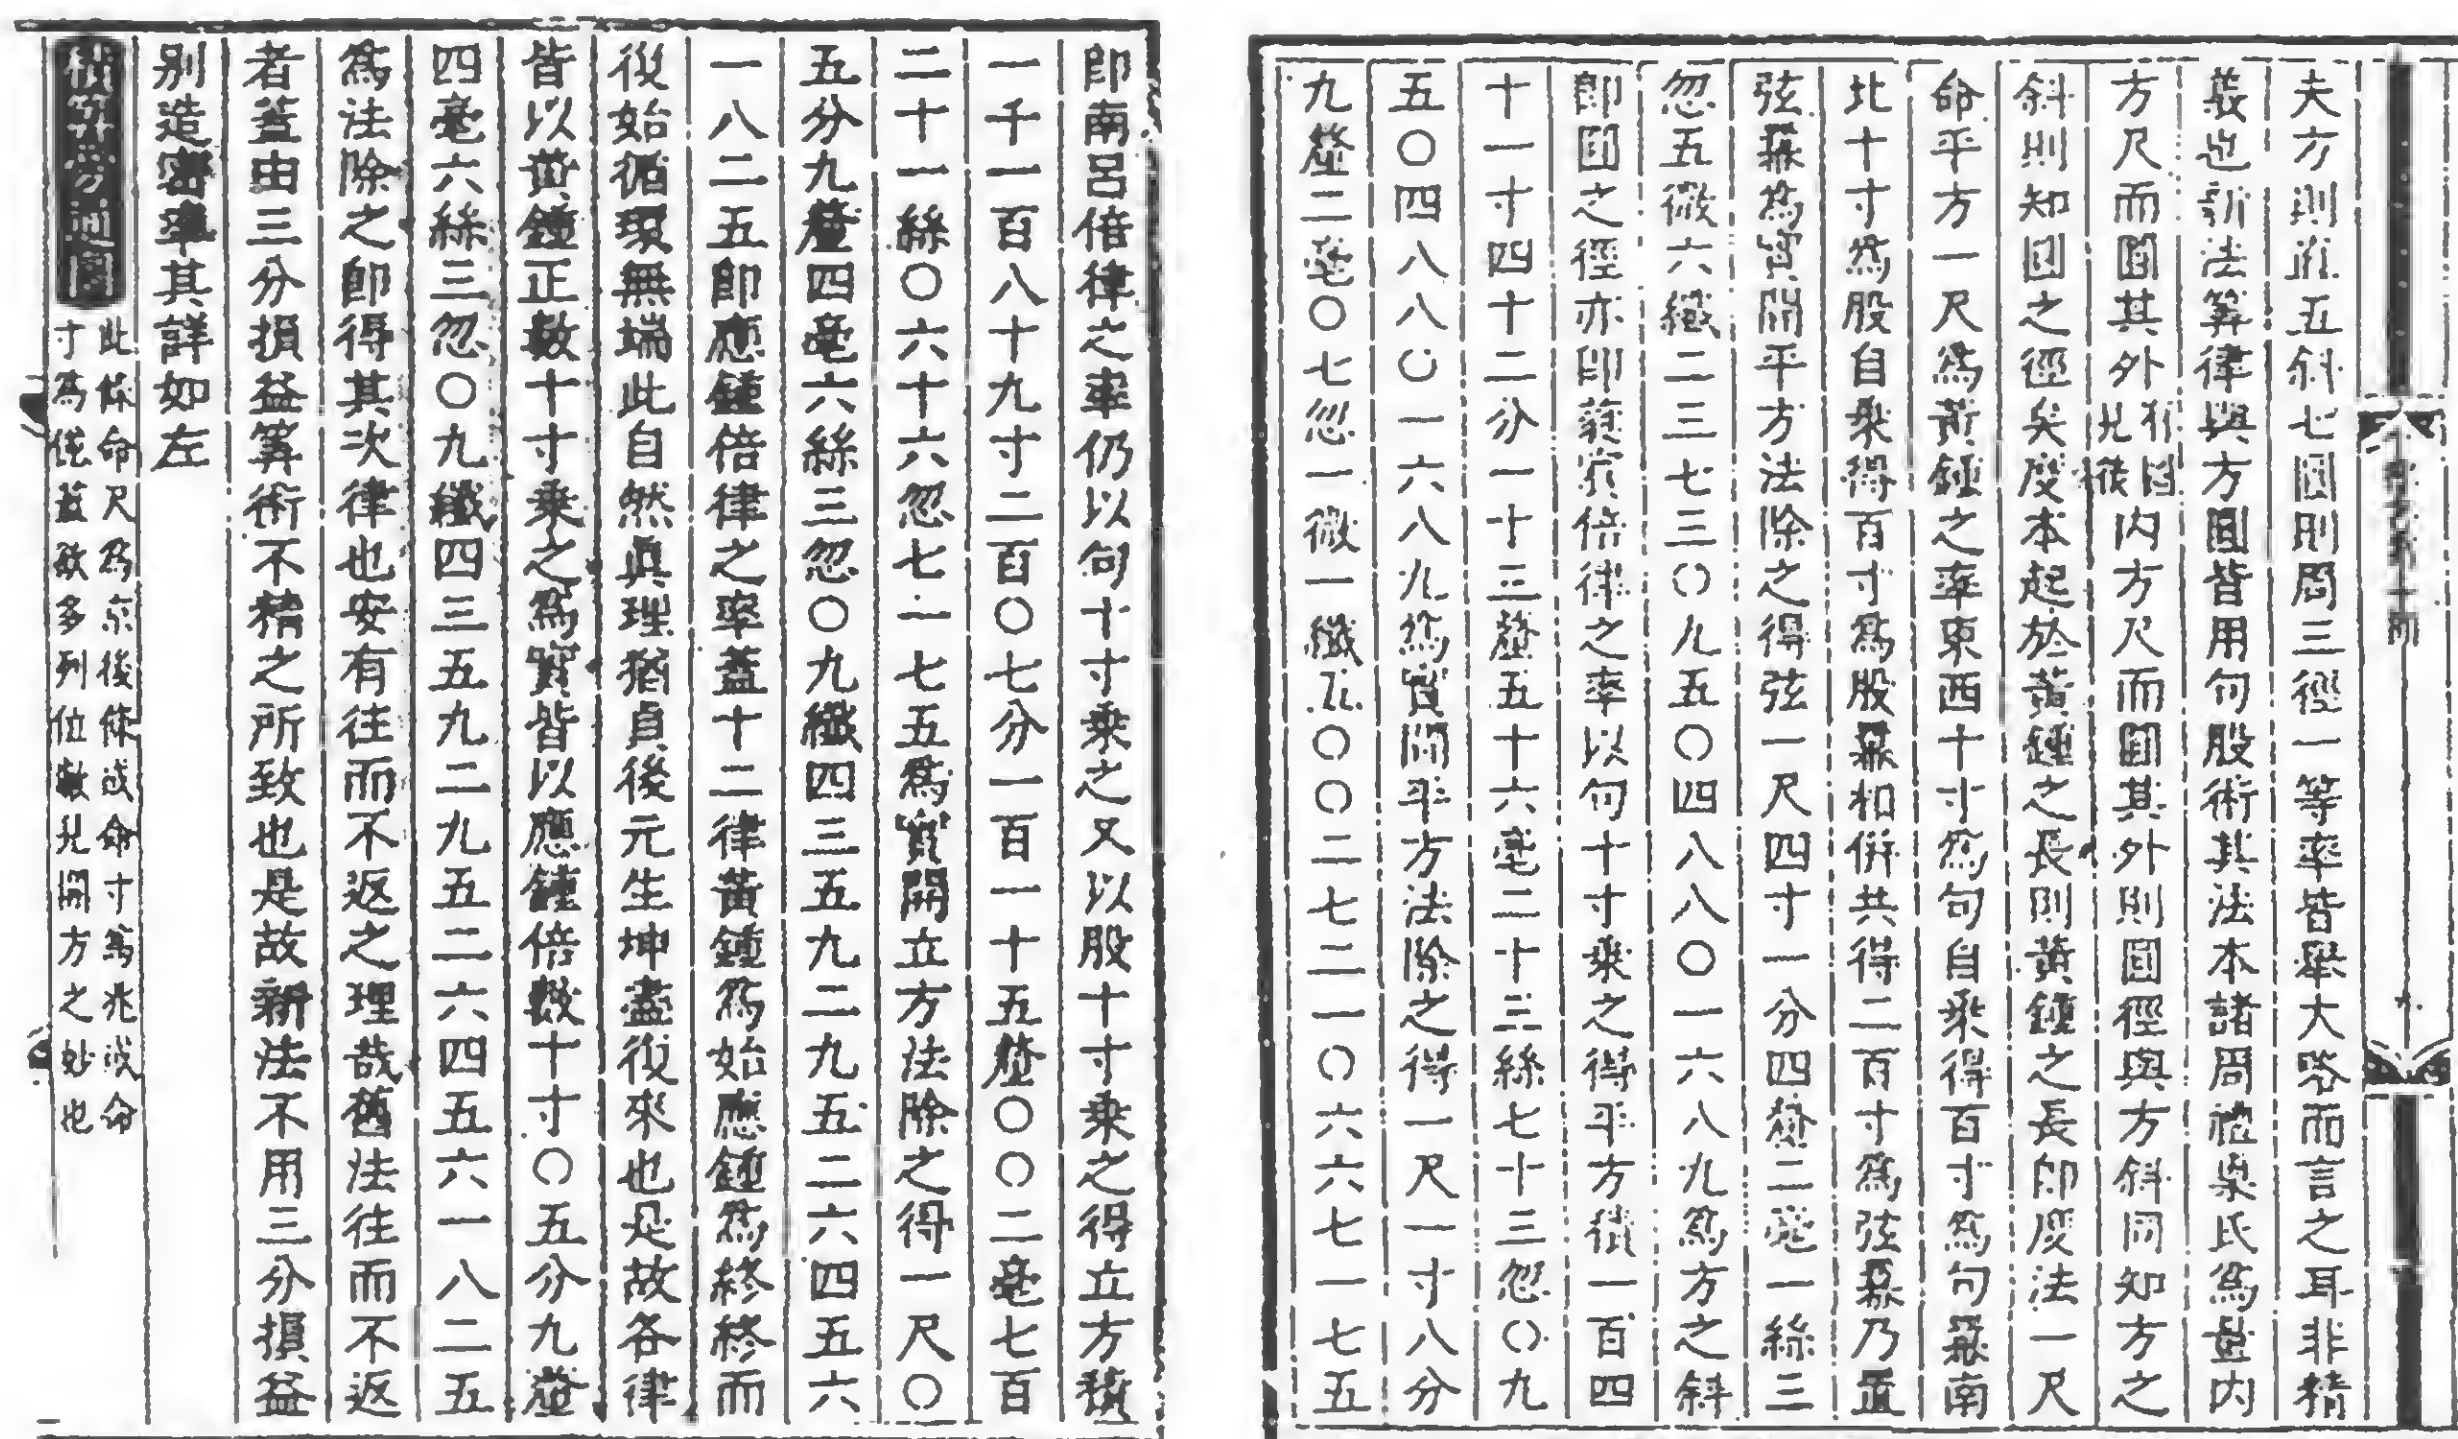 夫方則準五斜七圓則周三徑一等率皆舉大略而言之耳非精
義也新法算律與方圓皆用句股術其法本諸周禮㮚氏為量內
方尺而圜其外有圖見後內方尺而圜其外則圓徑與方斜同知方之
斜則知圓之徑矣度本起於黃鍾之長則黃鍾之長即度法一尺
命平方一尺為黃鍾之率東西十寸為句自乘得百寸為句冪南
北十寸為股自乘得百寸為股冪相併共得二百寸為弦冪乃置
弦冪為實開平方法除之得弦一尺四寸一分四釐二毫一絲三
忽五微六纖二三七三〇九五〇四八八〇一六八九為方之斜
即圓之徑亦即蕤賓倍律之率以句十寸乘之得平方積一百四
十一寸四十二分一十三釐五十六毫二十三絲七十三忽〇九
五〇四八八〇一六八九為實開平方法除之得一尺一寸八分
九釐二毫〇七忽一微一纖五〇〇二七二一〇六六七一七五
即南呂倍律之率仍以句十寸乘之又以股十寸乘之得立方積
一千一百八十九寸二百〇七分一百一十五釐〇〇二毫七百
二十一絲〇六十六忽七一七五為實開立方法除之得一尺〇
五分九釐四毫六絲三忽〇九纖四三五九二九五二六四五六
一八二五即應鍾倍律之率蓋十二律黃鍾為始應鍾為終終而
復始循環無端此自然真理猶貞後元生坤盡復來也是故各律
皆以黃鍾正數十寸乘之為實皆以應鍾倍數十寸〇五分九釐
四毫六絲三忽〇九纖四三五九二九五二六四五六一八二五
為法除之即得其次律也安有往而不返之理哉舊法往而不返
者蓋由三分損益算術不精之所致也是故新法不用三分損益
別造密率其詳如左
此條命尺為京後條或命寸為兆或命
寸為億蓋欲多列位數見開方之妙也